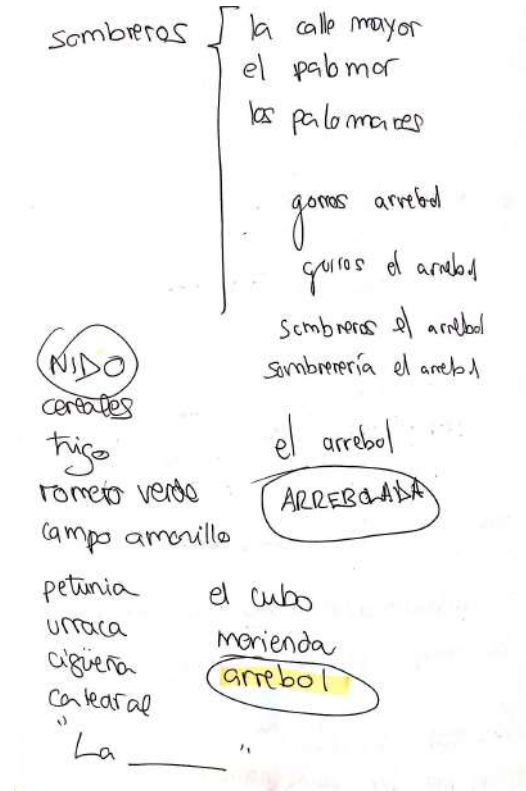 sombreros
la calle mayor
el palomar
los palomares
gorros arrebol
gorros el arrebol
Sombreros el arrebol
Sombrerería el arrebol
NIDO
cereales
trigo
romero verde
campo amarillo
el arrebol
ARREBOLADA
petunia
urraca
cigüeña
catedral
"La ______"
el cubo
merienda
arrebol